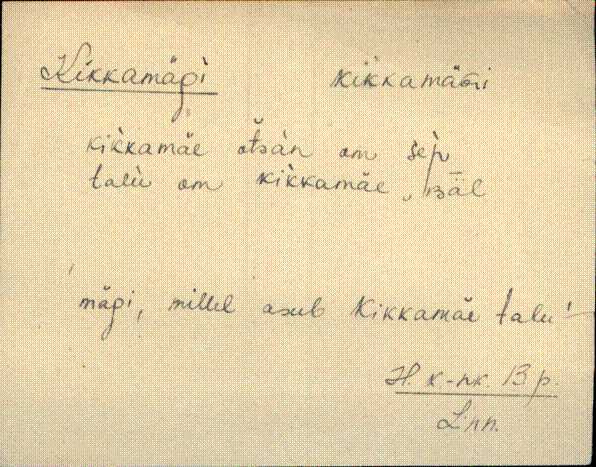 Kikkamägi kikkamäGi
kik̀kamäe õt̆sàn om šep̀
talù om kik̀kamäe
mägi, millel asub Kikkamäe talu
H. k-nk. B p.
L'nn.